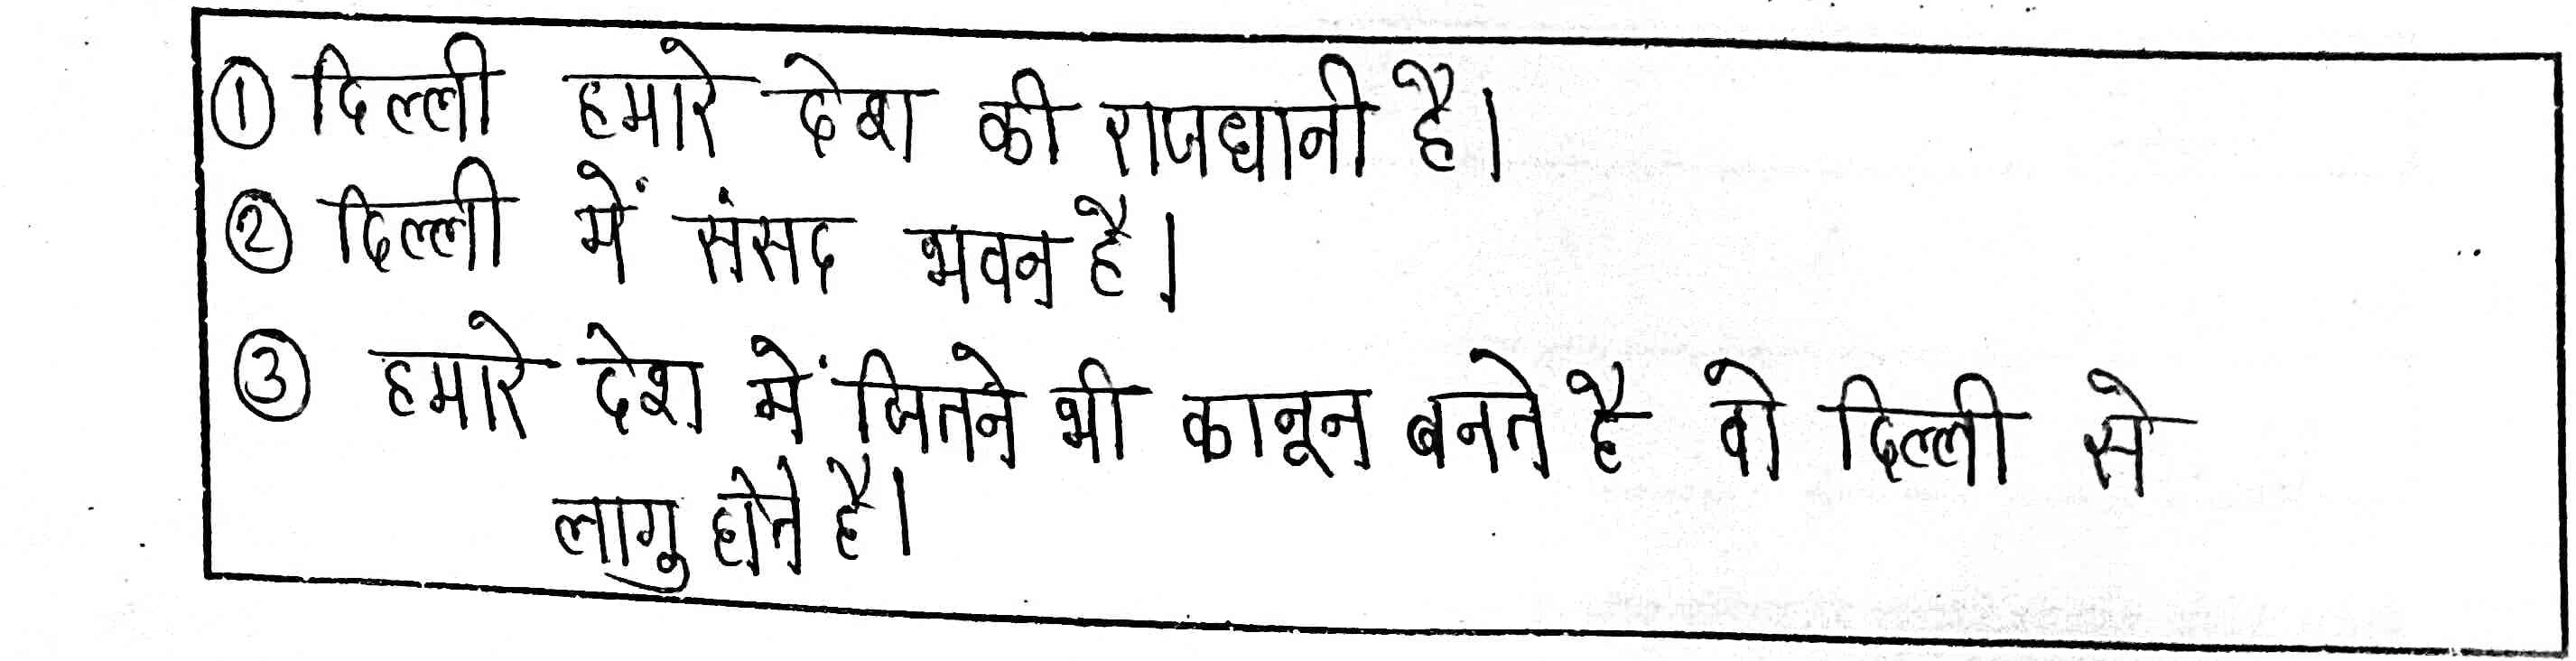 ① दिल्ली हमारे देश की राजधानी है।
② दिल्ली में संसद भवन है।
③ हमारे देश में जितने भी कानून बनते है वो दिल्ली से
लागु होते है।